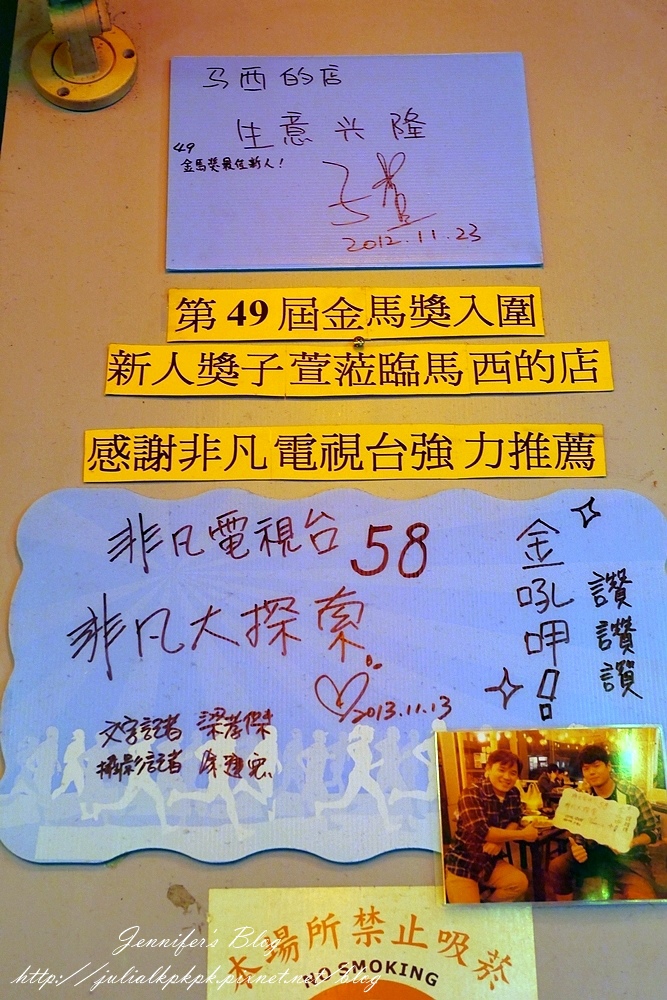 马西的店
生意兴隆
49
金馬獎最佳新人!
2012.11.23
第49屆金馬獎入圍
新人獎子萱蒞臨馬西的店
感謝非凡電視台強力推薦
非凡電視台 58
非凡大探索
2013.11.13
金吼呷!
讚讚讚
文字記者 梁孝傑
攝影記者
本場所禁止吸菸
NO SMOKING
Jennifer's Blog
http://julialkpkpk.pixnet.net/blog